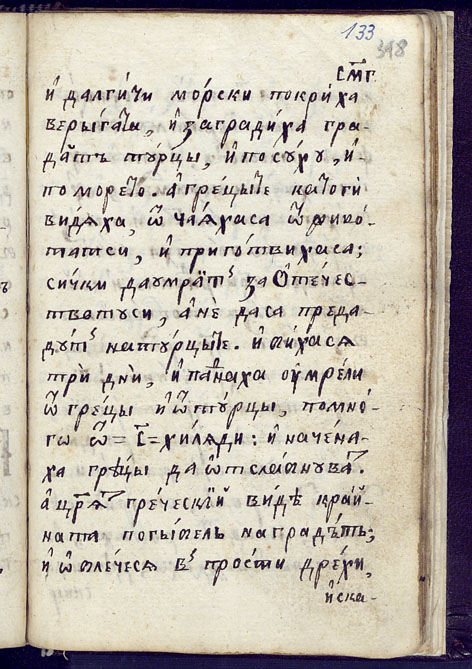 133
348
СМ҃Г
и҆ далги́чи мо́рски покри́ха
верыга́та, и҆ заградиха гра-
да́тъ ту́рцы, и҆ по су́ху, и҆
по море́то. а҆ гре́цыте като ги
видѧха, ѿчаѧхаса ѿ живо́-
татси, и҆ приготвихаса;
си́чки да умра́тъ за Оте́чес-
твотуси, а҆ не́ да са преда-
ду́тъ на ту́рцыте. и҆ би́хасѧ
трѝ дни̑, и҆ паднаха оумре́ли
ѿ гре́цы и҆ ѿ ту́рцы, помно́-
гѡ ѿ = С҃ = хи́лѧди: и҆ наче́на-
ха гръ́цы да ѿслабнуватъ.
а҆ цр҃ѧтъ гре́ческїй ви́дѣ кра́й-
ната погы́бель на градъ́тъ;
и҆ ѡ҆блече́сѧ въ про́сти дре́хи,
и҆ска-